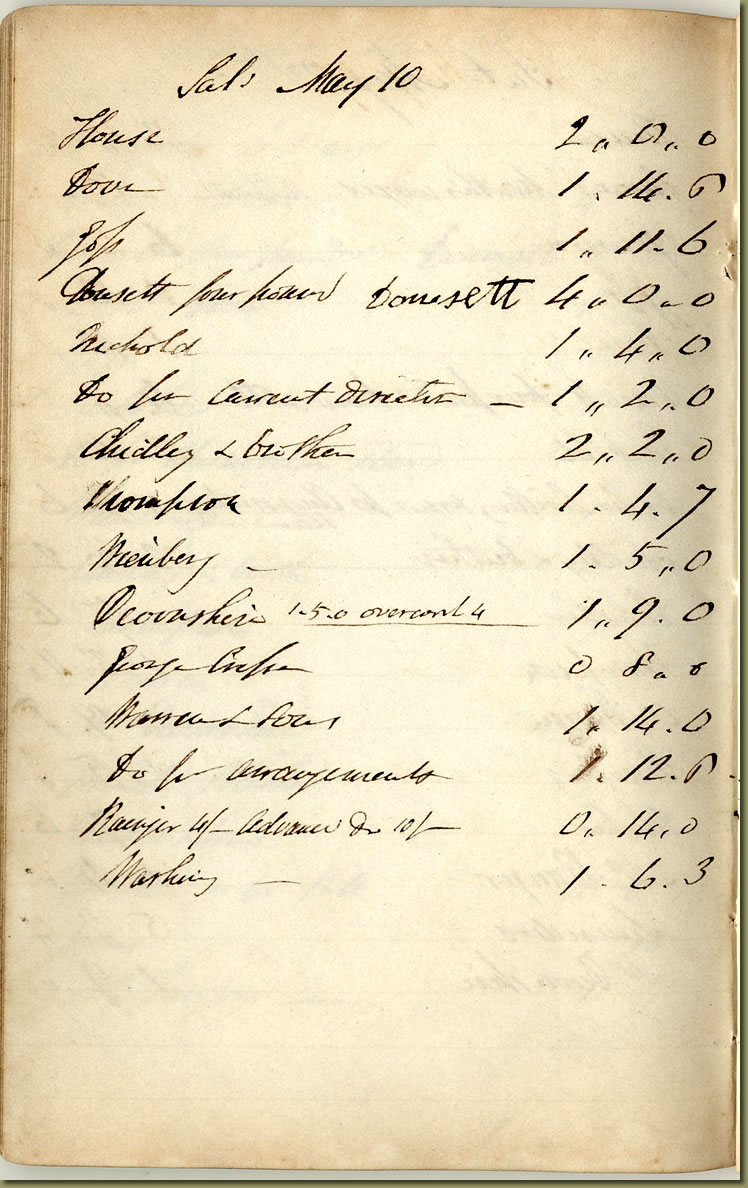 Sals May 10
House 2 „ 0 „ 0
Dove 1 . 14 . 0
Goss 1 „ 11 . 6
Dousett four pound Doucsett 4 „ 0 „ 0
Nichold 1 „ 4 „ 0
Do for Current Direction — 1 „ 2 „ 0
Chidley & brother 2 „ 2 „ 0
Thompson 1 . 4 . 7
Weinberg — 1 . 5 „ 0
Devonshire 1.5.0 overcoat 4 1 „ 9 . 0
George 0 8 „ 0
Warren & Sons 1 . 14 . 0
Do for arrangements 1 . 12 . 0
Rainger 4/– Advance Do 10/– 0 „ 14 „ 0
Washing — 1 . 6 . 3